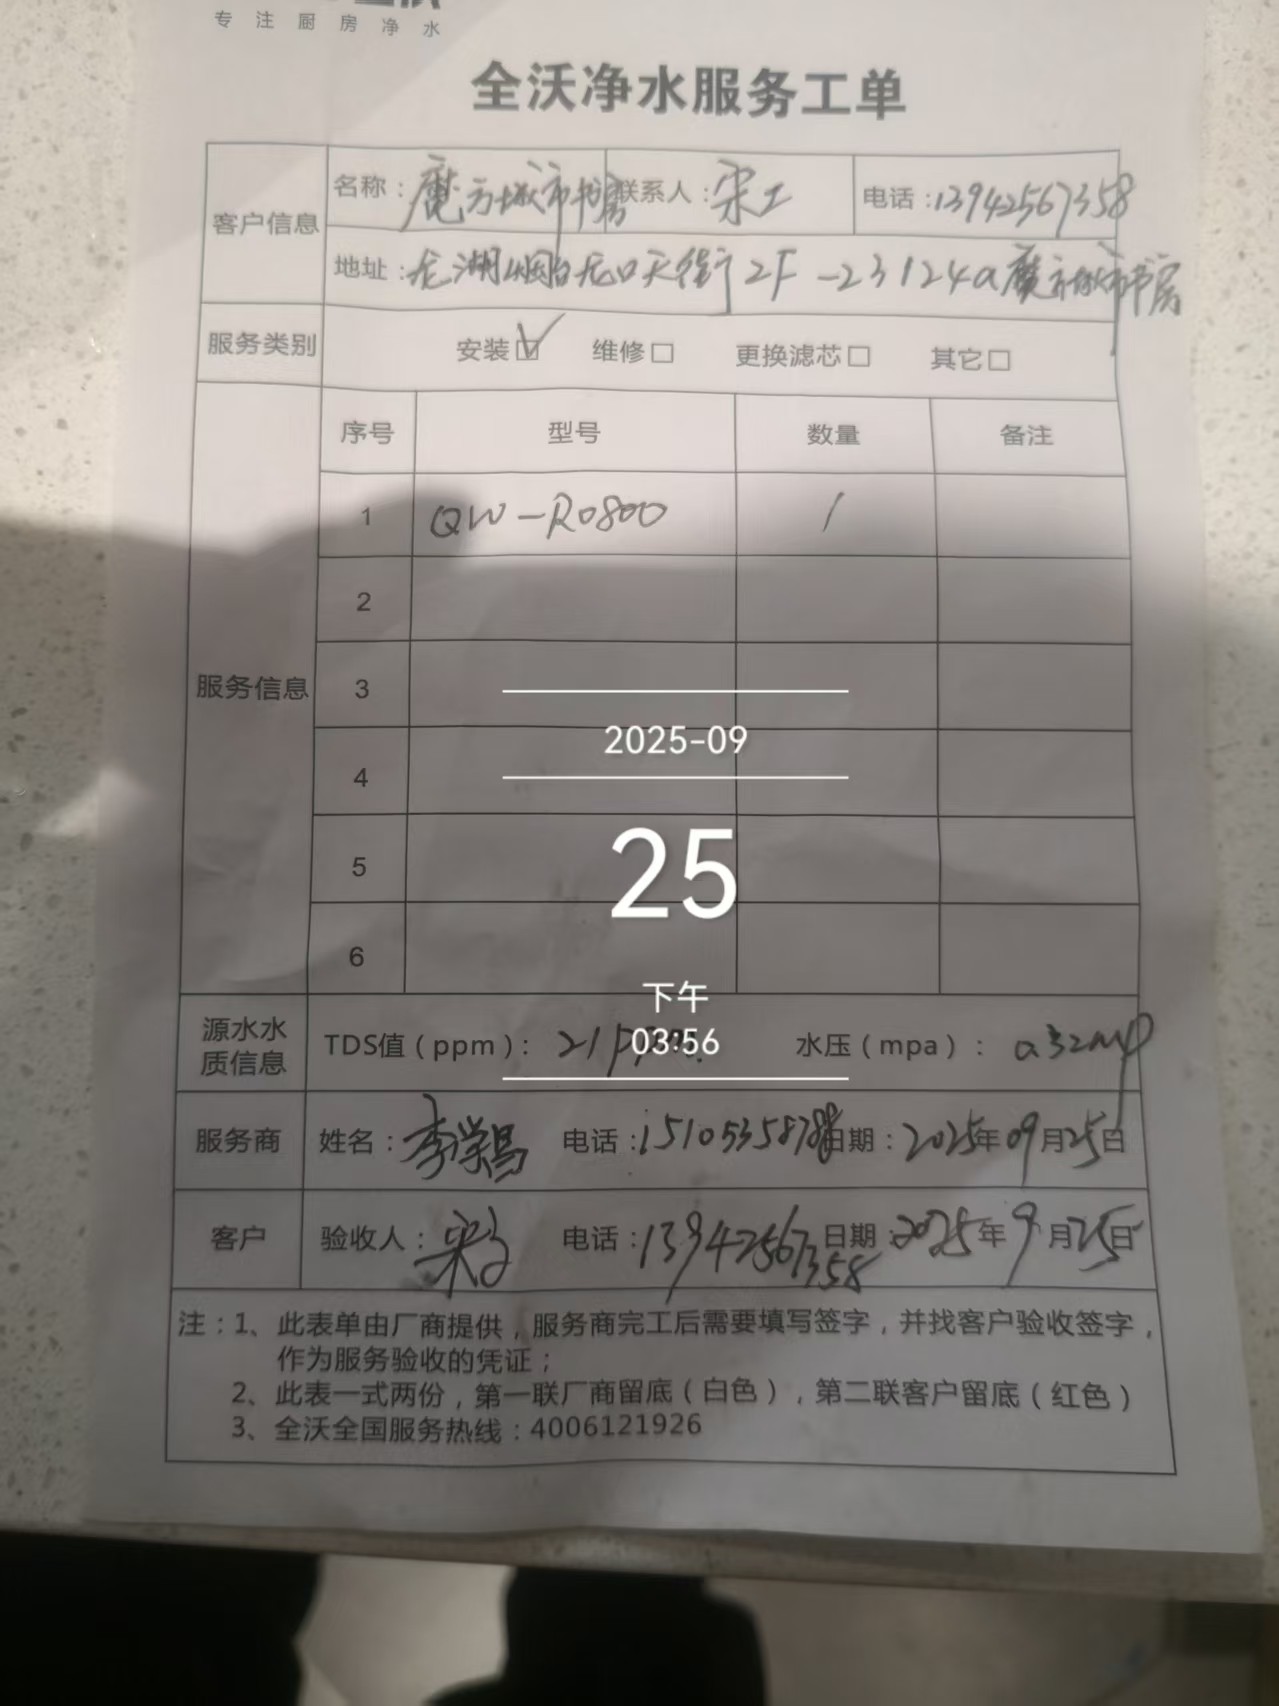 专注厨房净水
全沃净水服务工单
客户信息
名称：魔方城市书房 联系人：宋工 电话：13942567358
地址：龙湖烟台龙口天街2F-23124a魔方城市书房
服务类别 安装☑ 维修□ 更换滤芯□ 其它□
服务信息
序号 型号 数量 备注
1 QW-R0800 1
2
3
2025-09
4
5
25
6
下午
03:56
源水水质信息 TDS值（ppm）： 水压（mpa）：
服务商 姓名： 电话： 日期：2025年09月25日
客户 验收人： 电话：13942567358 日期：2025年9月25日
注：1、此表单由厂商提供，服务商完工后需要填写签字，并找客户验收签字，
作为服务验收的凭证；
2、此表一式两份，第一联厂商留底（白色），第二联客户留底（红色）
3、全沃全国服务热线：4006121926